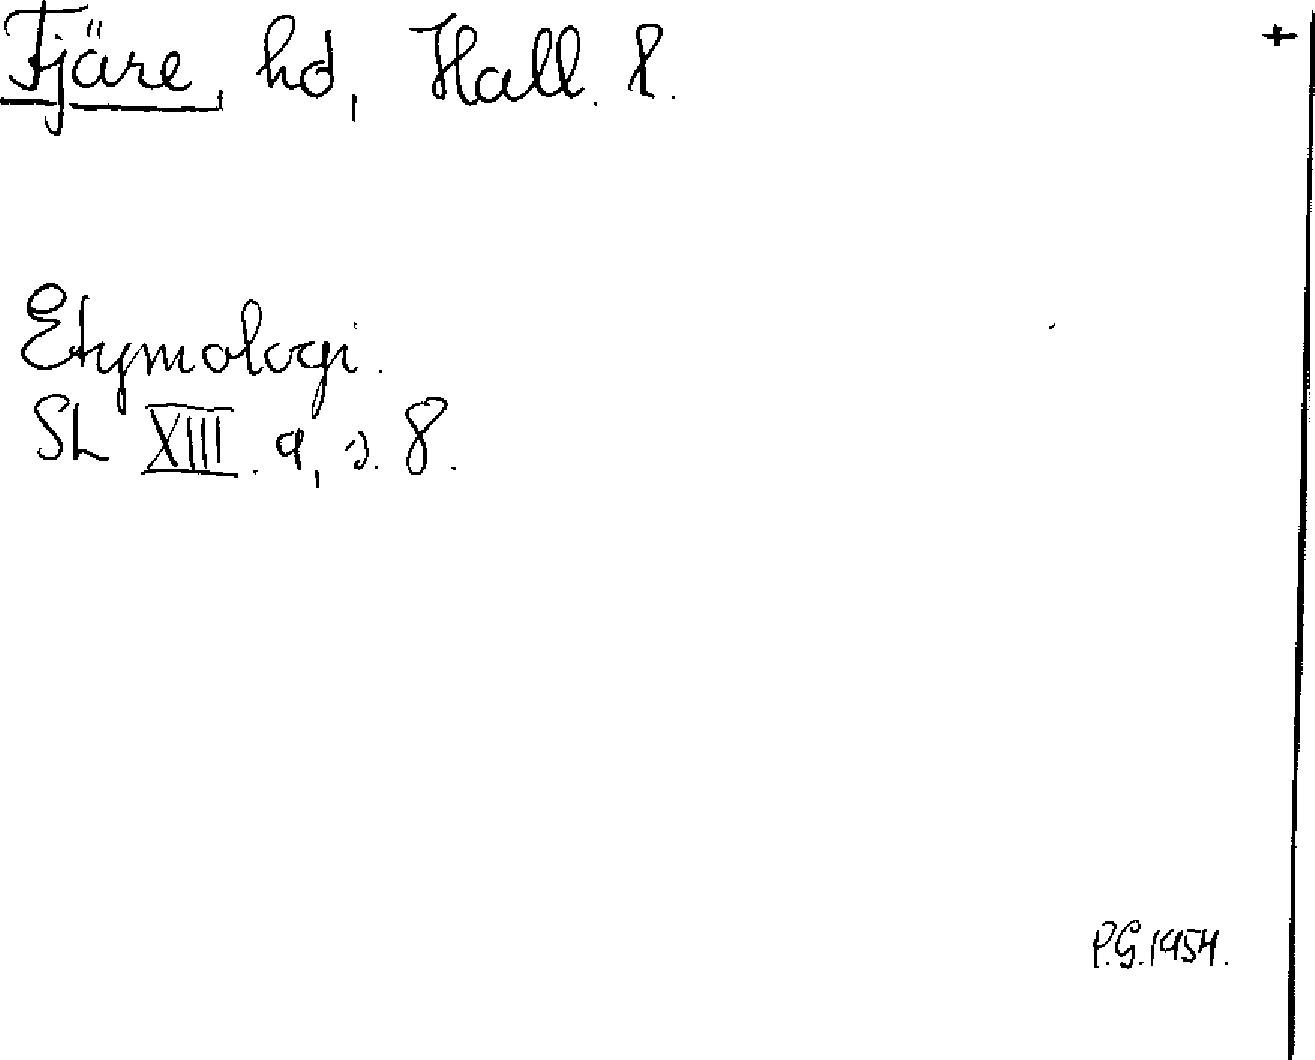 Fjäre, hd, Hall. l. +
Etymologi.
SL XIII. 9, s. 8.
P.G. 1954.